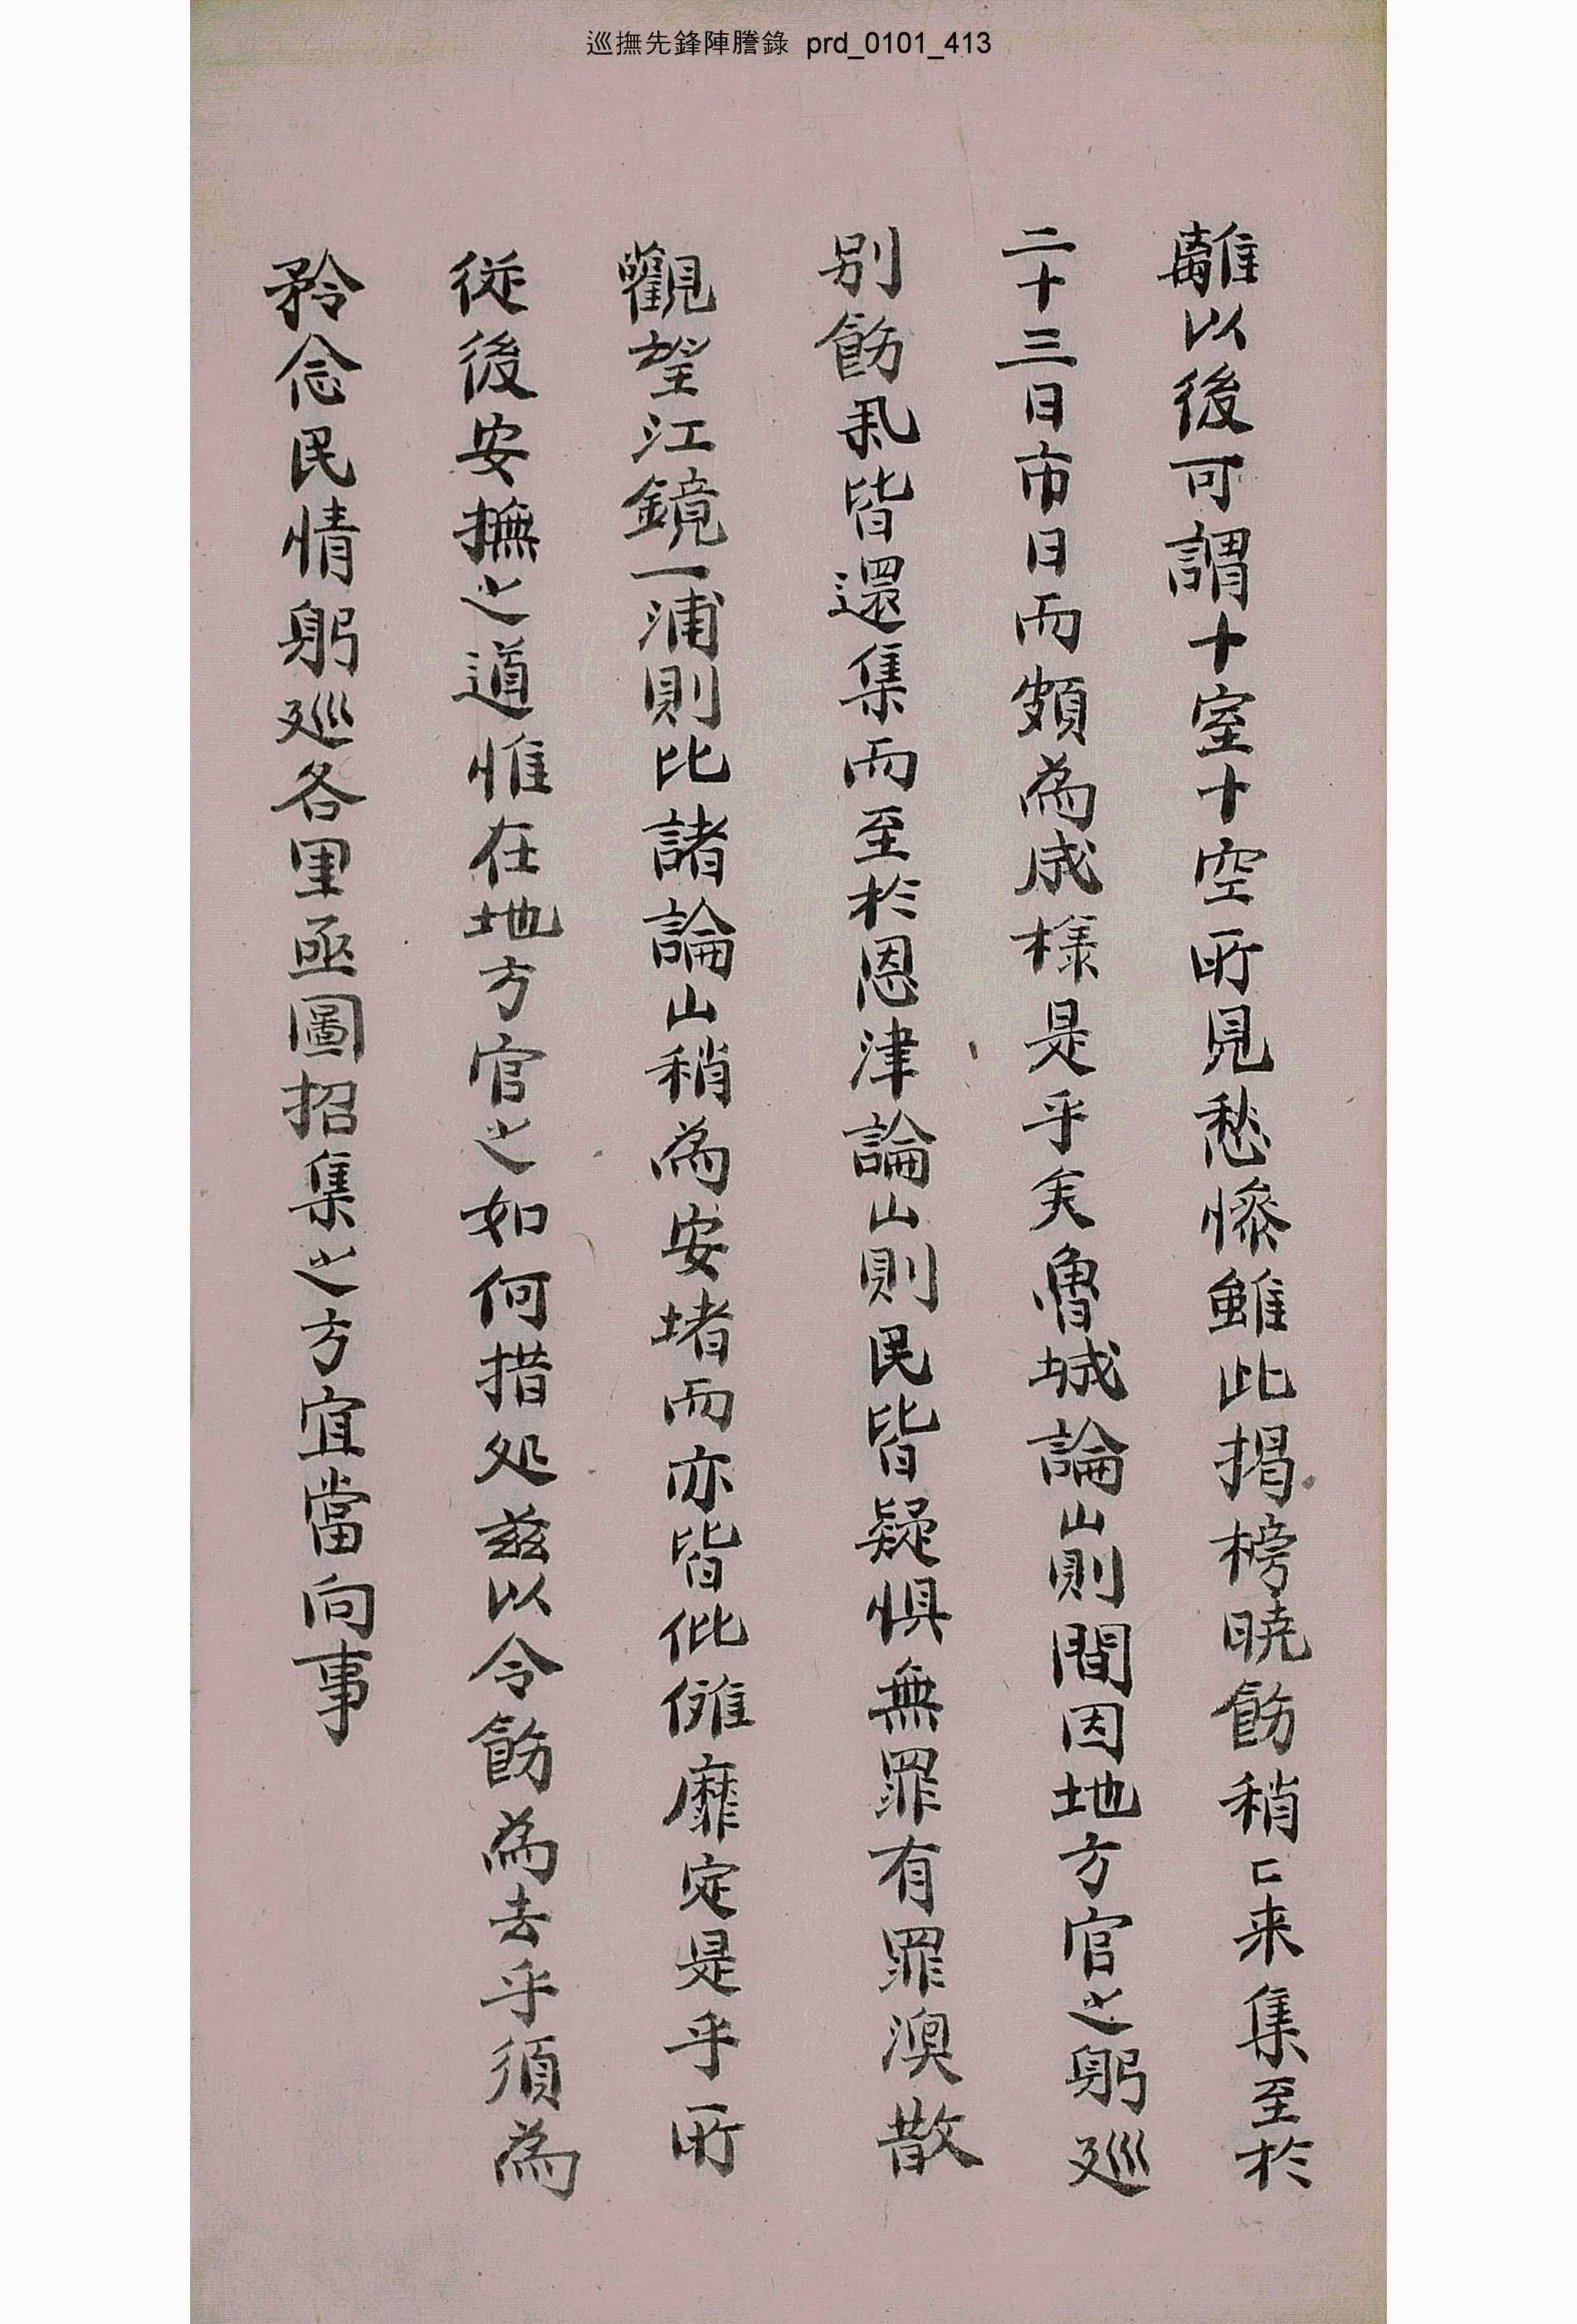 巡撫先鋒陣謄錄 prd_0101_413
離以後可謂十室十空所見愁慘雖此揭榜曉飭稍〻来集至於
二十三日市日而頗為成樣是乎矣魯城論山則間因地方官之躬廵
别飭虱皆還集而至於恩津論山則民皆疑惧無罪有罪渙散
觀望江鏡一浦則比諸論山稍為安堵而亦皆仳傩靡定是乎所
從後安撫之道惟在地方官之如何措处玆以令飭為去乎須為
矜念民情躬廵各里亟圖招集之方宜當向事